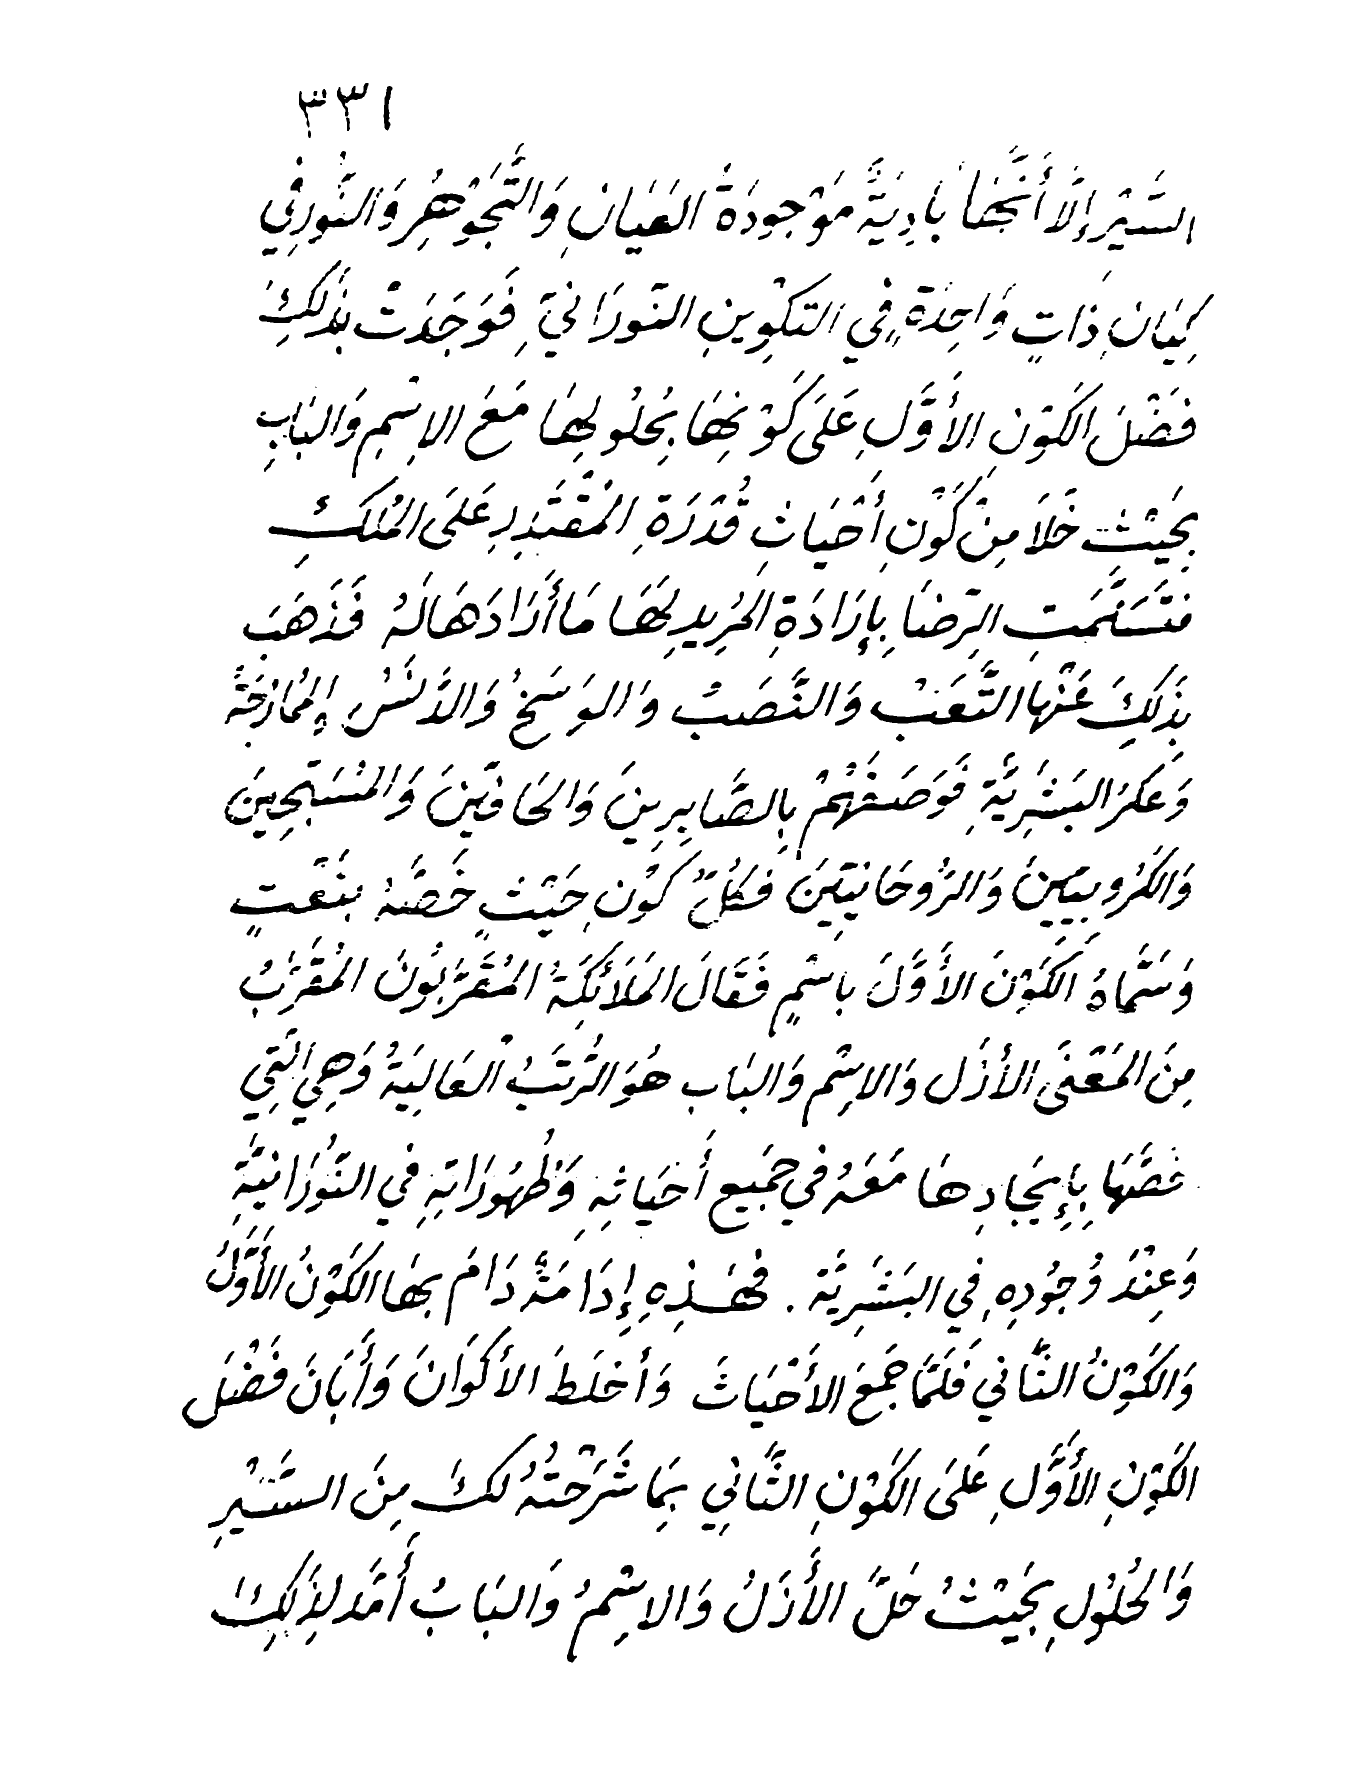 ٣٣١
السَّيْرِ إِلَّا أَنَّهَا بَادِيَةٌ مَوْجُودَةُ العَيَانِ وَالتَّجَوْهُرِ وَالنُّورِ فِي
كِيَانِ ذَاتٍ وَاحِدَةٍ فِي التَكْوِينِ النَّورَانِيِّ فَوَجَدَتْ بِذَلِكَ
فَضْلَ الكَوْنِ الأَوَّلِ عَلَى كَوْنِهَا بِحُلُولِهَا مَعَ الإِسْمِ وَالبَابِ
بِحَيْثِ خَلَا مِنْ كَوْنِ أَحْيَاثِ قُدْرَةِ المُقْتَدِرِ عَلَى المُلْكِ
فَتَسَنَّمَتِ الرِّضَا بِإِرَادَةِ المُرِيدِ لَهَا مَا أَرَادَهَا لَهُ فَذَهَبَ
بِذَلِكَ عَنْهَا التَّعَبْ وَالنَّصَبُ وَالوَسَخُ وَالدَّنَسُ لِمُمَازَجَةِ
وَعَكَرُ البَشَرِيَّةِ فَوَصَفَهُمْ بِالصَّابِرِينَ وَالحَافِّينَ وَالمُسَبِّحِينَ
وَالكَرُوبِيِّينَ وَالرُّوحَانِيِّينَ فَكُلِّ كَوْنِ حَيْثٍ خَصَّهُ بِنَعْتٍ
وَسَمَّاهُ الكَوْنَ الأَوَّلَ بِاسْمٍ فَقَالَ المَلَائِكَةُ المُقَرَّبُونَ المُقَرَّبُ
مِنَ المَعْنَى الأَزَل وَالاِسْم وَالبَاب هُوَ الرُّتَبُ العَالِيَةُ وَهِيَ الَّتِي
خَصَّهَا بِإِيجَادِهَا مَعَهُ فِي جَمِيعِ أَحْيَاثِهِ وَظُهُورَاتِهِ فِي النُّورَانِيَّةِ
وَعِنْدَ وُجُودِهِ فِي البَشَرِيَّة . فَهَذِهِ إِدَامَةٌ دَامَ بِهَا الكَوْنُ الأَوَّلُ
وَالكَوْنُ الثَّانِي فَلَمَّا جَمَعَ الأَحْيَاثَ وَأَخلَطَ الأَكْوَانَ وَأَبَانَ فَضْلَ
الكَوْنِ الأَوَّلِ عَلَى الكَوْنِ الثَّانِي بِمَا شَرَحْتُهُ لَكَ مِنَ السَّيْرِ
وَالحُلُولِ بِحَيْثُ حَلَّ الأَزَلُ وَالاِسْمُ وَالبَابُ أَمَّدَ لِذَلِكَ